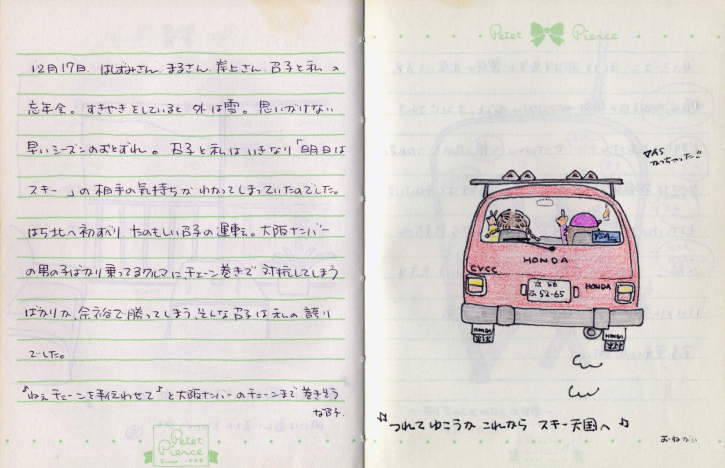 12月17日. はしづみさん まるさん 岸上さん 召子と私 の
忘年会。 すきやきをしていると 外は雪。 思いがけない
早いシーズンのおとずれ。 召子と私は いきなり「明日は
スキー」の 相手の気持ちが わかってしまっていたのでした。
はち北へ初すべり たのもしい召子の運転。大阪ナンバー
の男の子ばかり 乗ってるクルマにチェーン巻きで 対抗してしまう
ばかりか、余裕で 勝ってしまう、そんな召子は 私の 誇り
でした。
♪ねえ チェーンを手伝わせて♪ と大阪ナンバーのチェーンまで 巻きそう
な召子.
Peter Pierce
Peter Pierce
なっちゃった!!
HONDA
CVCC
HONDA
56
52-65
HONDA
HONDA
♫ つれて ゆこうか これから スキー天国へ ♫